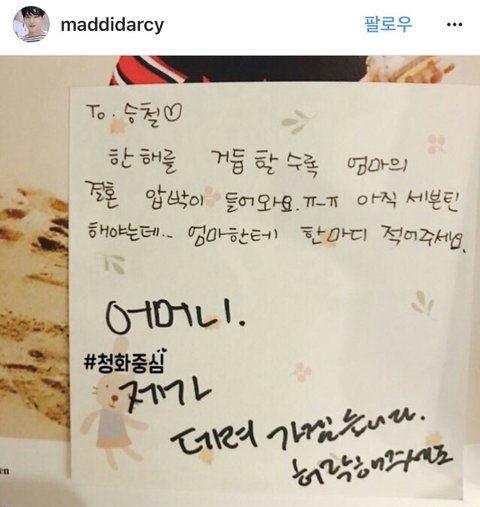 maddidarcy
팔로우
To. 승철♡
한 해를 거듭 할 수록 엄마의
결혼 압박이 들어와요.ㅠ-ㅠ 아직 세븐틴
해야는데... 엄마한테 한마디 적어주세요.
어머니.
#청화중심
제가
데려 가겠습니다.
허락해주세요
en